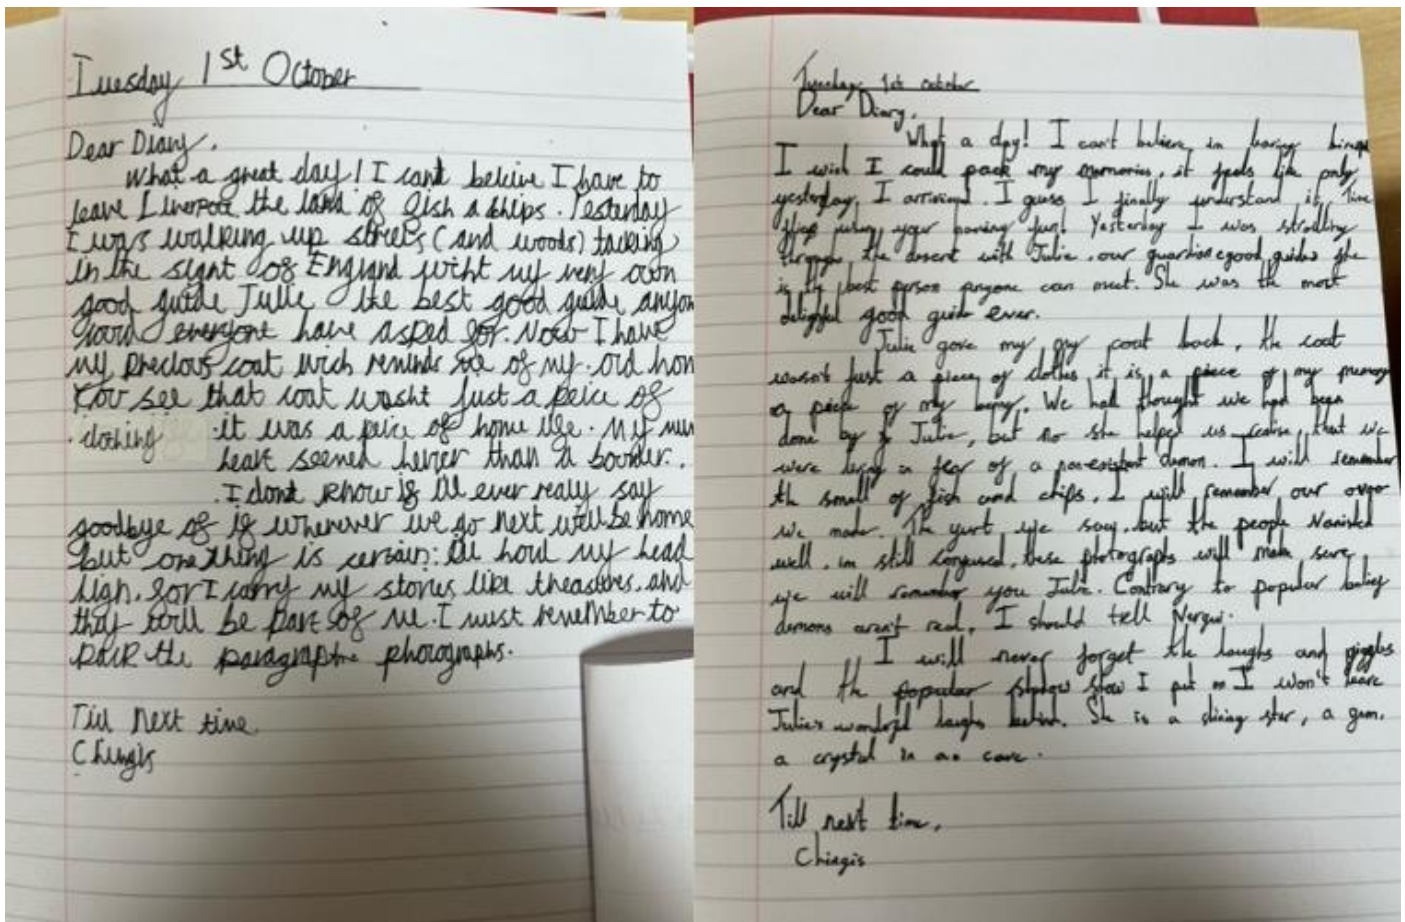 Tuesday 1st October
Dear Diary,
What a great day! I cant beleive I have to
leave Liverpool the land of fish a chips. Yesterday
I was walking up streets (and woods) tacking
in the sight of England witht my very own
good guide Julie the best good guide anyon
everyone have asked for. Now I have
my precious coat wich reminds me of my old hom
You see that coat wasnt just a peice of
clothing it was a peice of home life. My
heart seemed hevier than a boulder.
I dont know if Ill ever realy say
goodbye of if wherever we go next will be home
but one thing is certain: Ill hold my head
high, for I carry my stories like theasures, and
they will be part of me. I must remember to
pack the photographs.
Till next time
Chingis
Tuesday 1st October
Dear Diary,
What a day! I can't believe im leaving
I wish I could pack my memories, it feels like only
yesterday, I arrived. I guess I finally understand it, Time
flies when your having fun! Yesterday I was strolling
through the desert with Julie, our good guide she
is the best person anyone can meet. She was the most
delightful good guide ever.
Julie gave my coat back, the coat
wasn't just a piece of clothes it is a piece of my memory
a piece of my being. We had thought we had been
done by Julie, but no she helped us realise, that we
were living in fear of a non-existent demon. I will remember
the smell of fish and chips. I will remember our
we made. The yurt we saw, but the people
well, im still confused, these photographs will make sure
we will remember you Julie. Contrary to popular belief
demons aren't real, I should tell Nergui.
I will never forget the laughs and giggles
and the show I put on I won't leave
Julie's wonderful laughs behind. She is a shining star, a gem,
a crystal in a cave.
Till next time,
Chingis